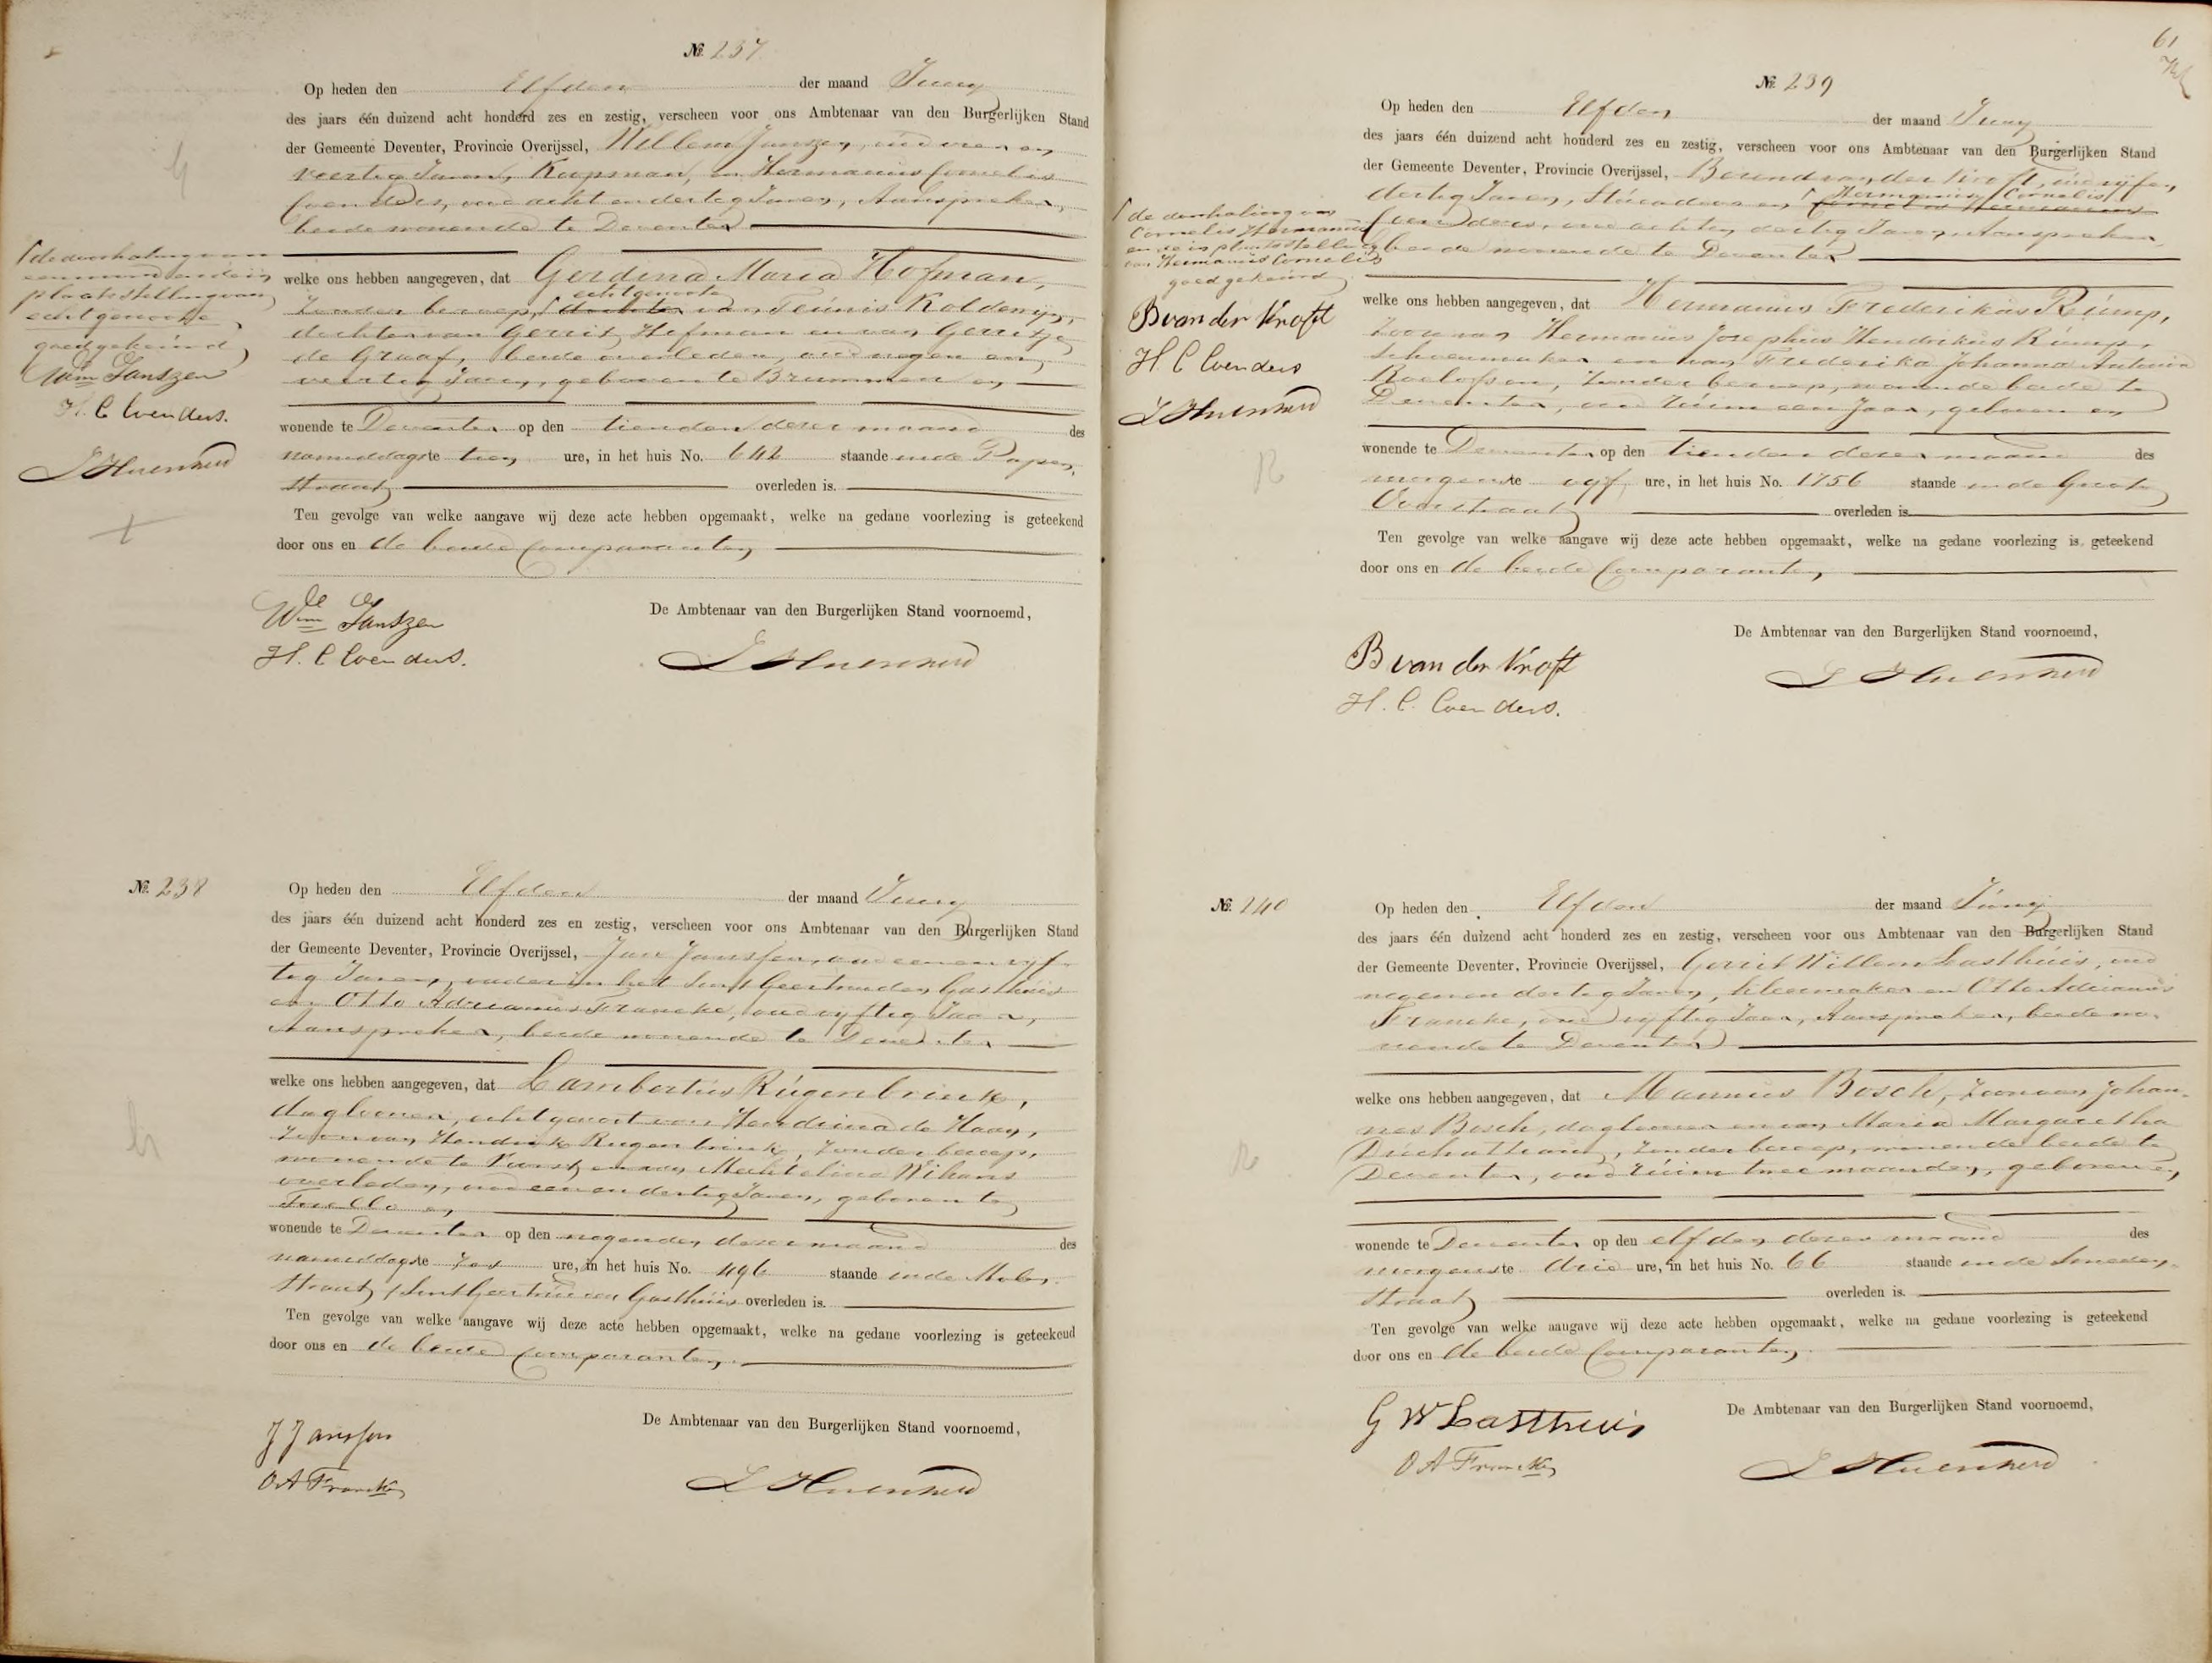 № 237
Op heden den Elfden der maand Juny
des jaars één duizend acht honderd zes en zestig, verscheen voor ons Ambtenaar van den Burgerlijken Stand
der Gemeente Deventer, Provincie Overijssel, Willem Janszen, oud vier en
veertig Jaren, Koopman, en Hermanus Cornelis
Coenders, oud acht en dertig Jaren, Aanspreker,
beide wonende te Deventer
welke ons hebben aangegeven, dat Gerdina Maria Hofman,
echtgenoote
zonder beroep, dochter van Teunis Kolderijn,
dochter van Gerrit Hofman en van Gerritje
de Graaf, beide overleden, oud negen en
veertig Jaren, geboren te Brummen en
wonende te Deventer op den tienden dezer maand des
namiddagste tien ure, in het huis No. 642 staande in de Papen
straat overleden is.
Ten gevolge van welke aangave wij deze acte hebben opgemaakt, welke na gedane voorlezing is geteekend
door ons en de beide Comparanten
De Ambtenaar van den Burgerlijken Stand voornoemd,
Wm Jantzen
H. C Coenders.
de doorhaling van
plaatsstelling van
echtgenoote
goedgekeurd
Wm Jantzen
H. C Coenders.
№ 238
Op heden den Elfden der maand Juny
des jaars één duizend acht honderd zes en zestig, verscheen voor ons Ambtenaar van den Burgerlijken Stand
der Gemeente Deventer, Provincie Overijssel, Jan Janssen, oud een en vyf
tig Jaren, vader in het Sint Geertruiden Gasthuis
en Otto Adrianus Francke, oud vyftig Jaar,
Aanspreker, beide wonende te Deventer
welke ons hebben aangegeven, dat Lambertus Rugenbrink,
daglooner, echtgenoot van Hendrina de Haan,
zoon van Hendrik Rugenbrink, zonder beroep,
wonende te Voorst en van Mechtelina Wihans
overleden, oud een en dertig Jaren, geboren te
Twello en
wonende te Deventer op den negenden dezer maand des
namiddagste zes ure, in het huis No. 496 staande in de Molen
straat Sint Geertruiden Gasthuis overleden is.
Ten gevolge van welke aangave wij deze acte hebben opgemaakt, welke na gedane voorlezing is geteekend
door ons en de beide Comparanten
De Ambtenaar van den Burgerlijken Stand voornoemd,
J Janssen
O A Francke
61
№ 239
Op heden den Elfden der maand Juny
des jaars één duizend acht honderd zes en zestig, verscheen voor ons Ambtenaar van den Burgerlijken Stand
der Gemeente Deventer, Provincie Overijssel, Berend van der Kroft, oud vyf en
Hermanus Cornelis
dertig Jaren, Stucadoor en Cornelis Hermanus
Coenders, oud acht en dertig Jaren, Aanspreker
beide wonende te Deventer
welke ons hebben aangegeven, dat Hermanus Frederikus Rump,
zoon van Hermanus Josephus Hendrikus Rump,
Schoenmaker en van Frederika Johanna Antonia
Roelofsen, zonder beroep, wonende beide te
Deventer, oud ruim een Jaar, geboren en
wonende te Deventer op den tienden dezer maand des
morgenste vyf ure, in het huis No. 1756 staande in de Groote
Overstraat overleden is
Ten gevolge van welke aangave wij deze acte hebben opgemaakt, welke na gedane voorlezing is geteekend
door ons en de beide Comparanten
De Ambtenaar van den Burgerlijken Stand voornoemd,
B van der Kroft
H. C. Coenders.
de doorhaling van
Cornelis Hermanus
en de in plaatsstelling
van Hermanus Cornelis
goedgekeurd
B van der Kroft
H. C Coenders
№ 240
Op heden den Elfden der maand Juny
des jaars één duizend acht honderd zes en zestig, verscheen voor ons Ambtenaar van den Burgerlijken Stand
der Gemeente Deventer, Provincie Overijssel, Gerrit Willem Lasthuis, oud
negen en dertig Jaren, kleermaker en Otto Adrianus
Francke, oud vyftig Jaar, Aanspreker, beide wo
nende te Deventer
welke ons hebben aangegeven, dat Mannus Bosch, zoon van Johan
nes Bosch, daglooner en van Maria Margaretha
zonder beroep, wonende beide te
Deventer, oud ruim twee maanden, geboren en
wonende te Deventer op den elfden dezer maand des
morgenste drie ure, in het huis No. 66 staande in de Smeden
straat overleden is.
Ten gevolge van welke aangave wij deze acte hebben opgemaakt, welke na gedane voorlezing is geteekend
door ons en de beide Comparanten
De Ambtenaar van den Burgerlijken Stand voornoemd,
G W Lasthuis
O A Francke